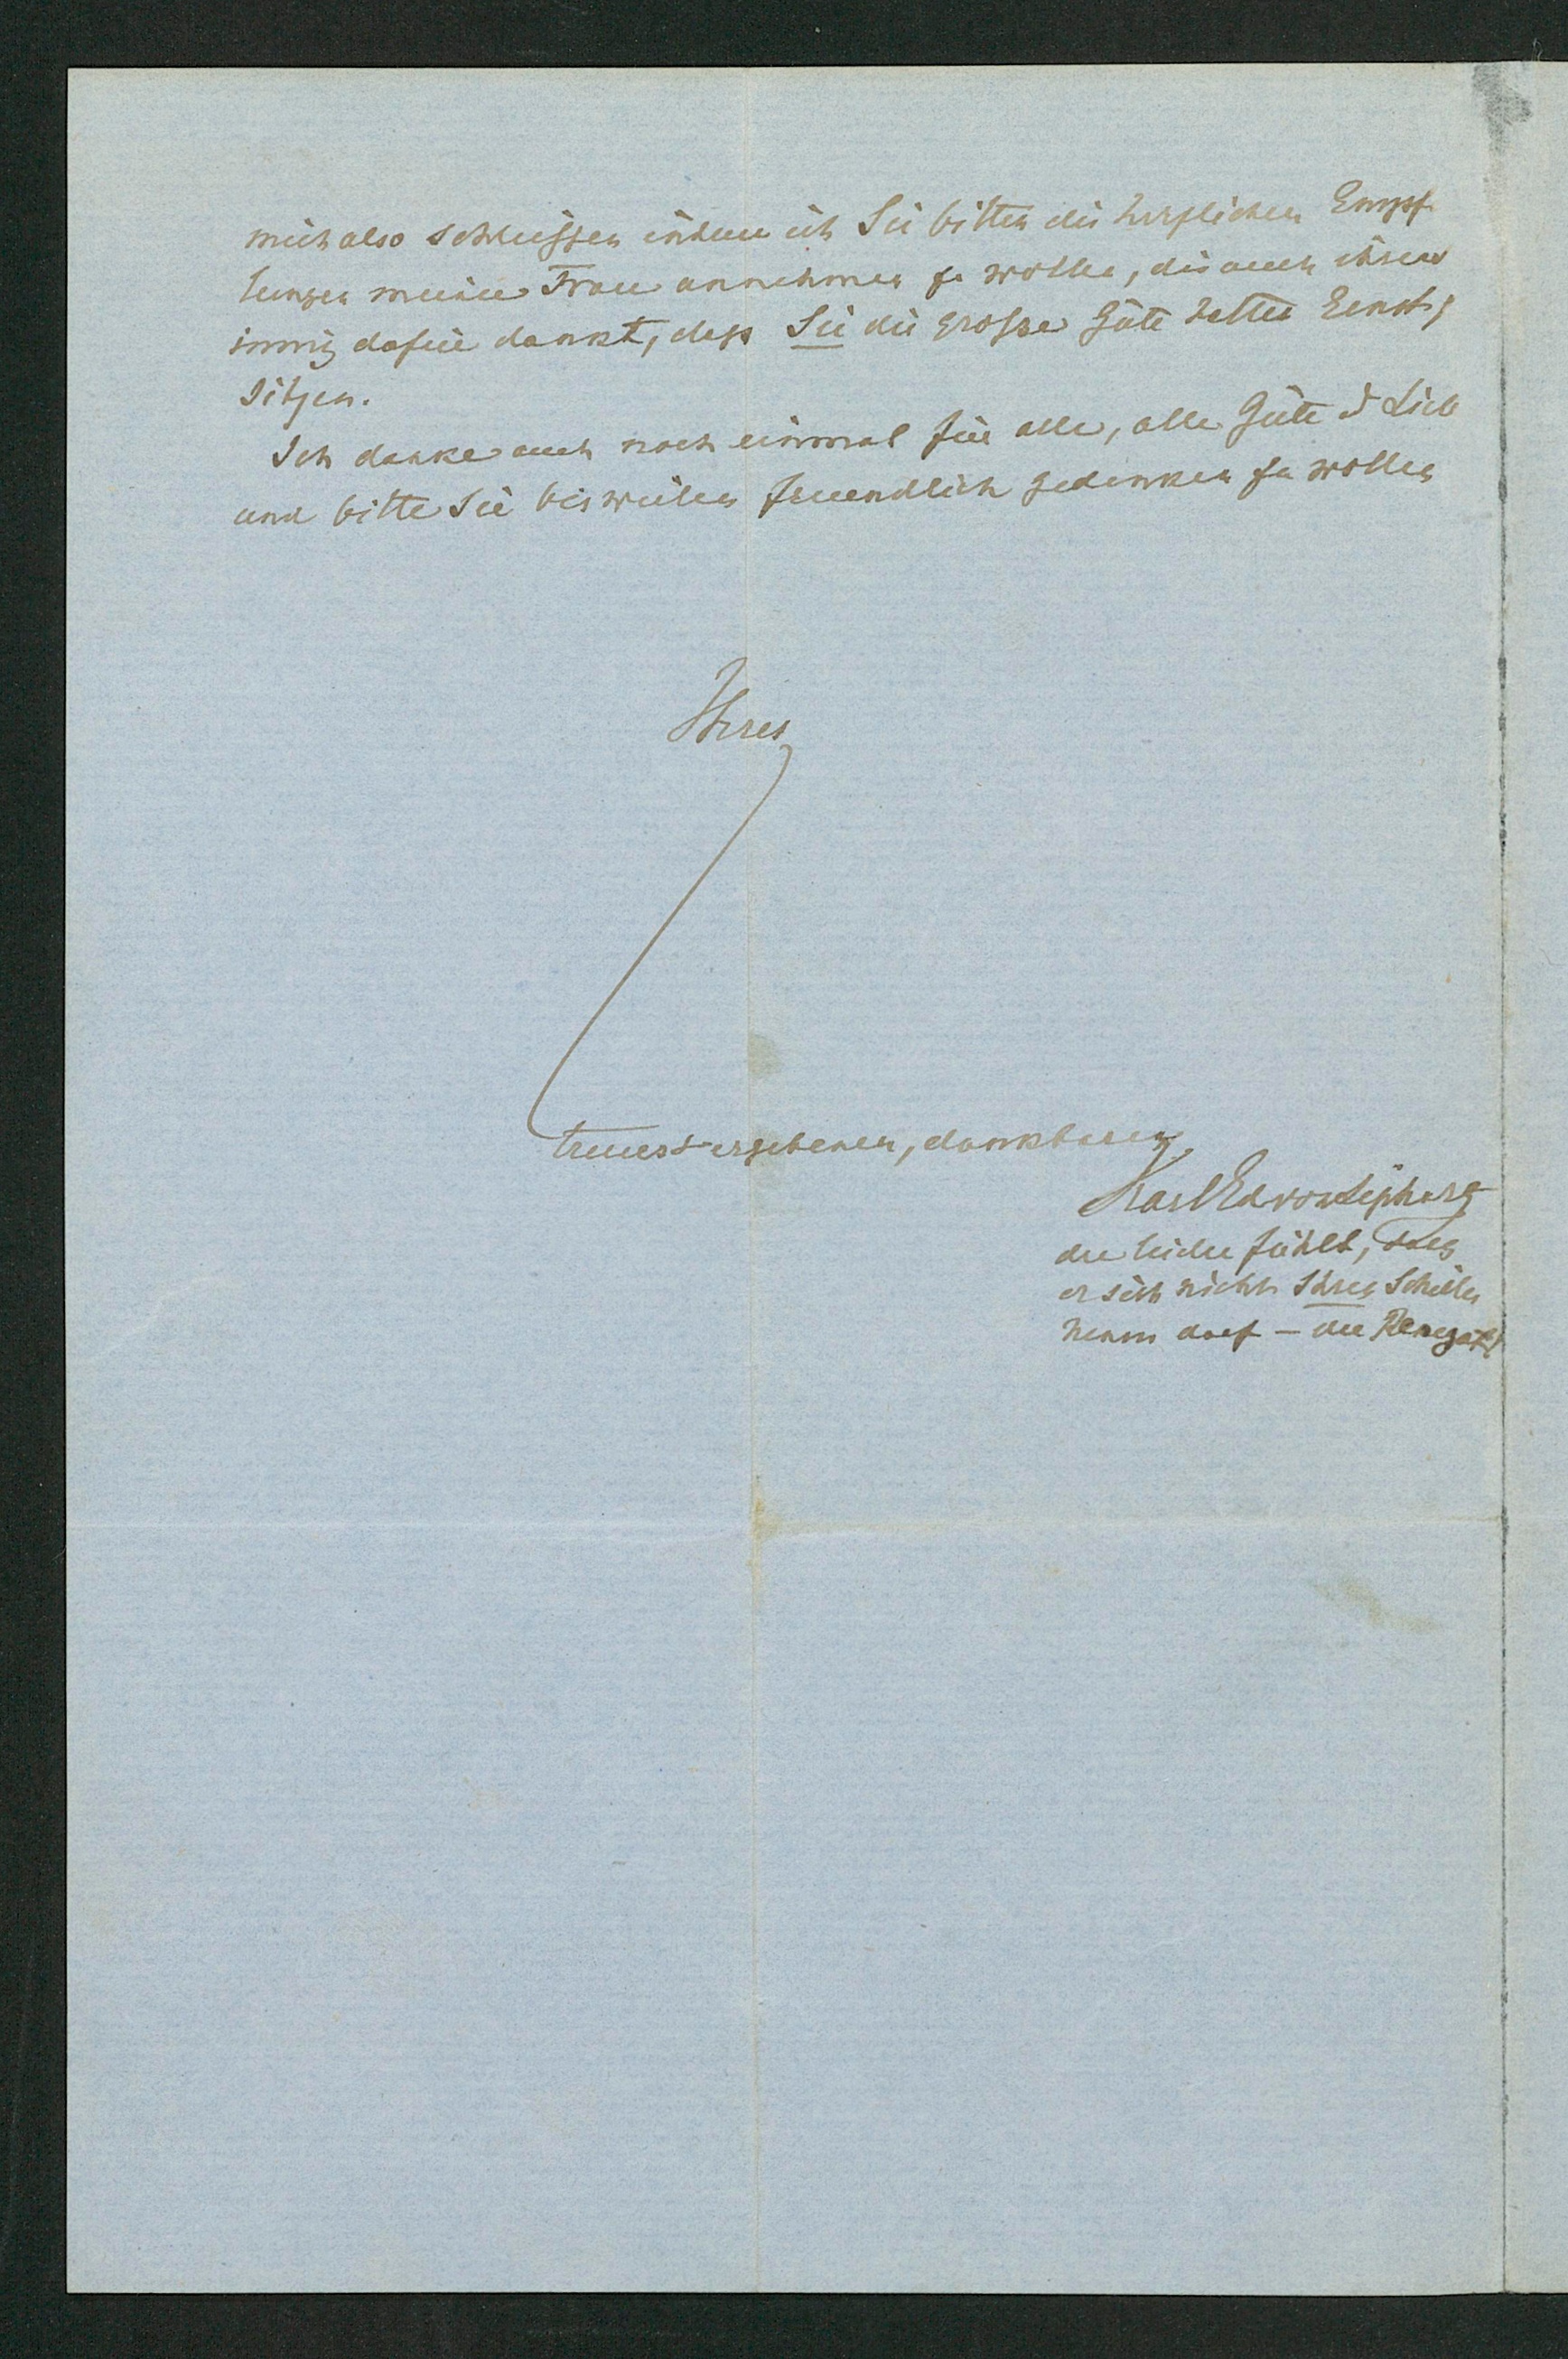 mich also schließen indem ich Sie bitten die herzlichen Empf
lungen meiner Frau annehmen zu wollen, die auch ihnen
innig dafür dankt, dass Sie die grosse Güte hatten
sitzen.
Ich danke auch noch einmal für alle, alle Güte & Liebe
und bitte Sie bisweilen freundlich gedenken zu wollen
Ihres
treuest ergebenen, dankbaren
Karl Ed von Liphart
der leider fühlt, dass
er sich nicht Ihren Schüler
nennen darf – der Renegat!